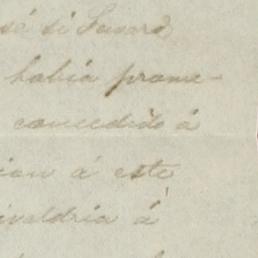 sé si
habia prome-
concedido á
ion á este
ivaldria á